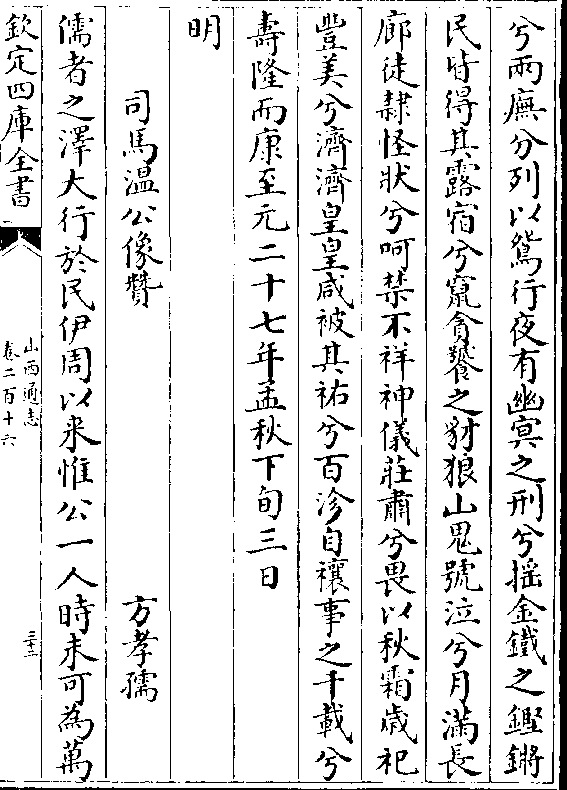 兮兩廡分列以鴛行夜有幽冥之刑兮揺金鐵之鏗鏘
民皆得其露宿兮竄貪饕之豺狼山鬼號泣兮月滿長
廊徒隸怪狀兮呵禁不祥神儀莊肅兮畏以秋霜歳祀
豐美兮濟濟皇皇咸被其祐兮百沴自禳事之千載兮
壽隆而康至元二十七年孟秋下旬三日
明
司馬温公像贊 方孝孺
儒者之澤大行於民伊周以来惟公一人時未可為萬
欽定四庫全書
山西通志
卷二百十六
三十二